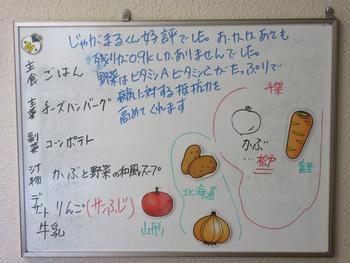 じゃがまるくん好評でした。おかかあえも
残りが0.9kしかありませんでした。
野菜はビタミンAビタミンCがたっぷりで
病気に対する抵抗力を
高めてくれます
主食 ごはん
主菜 チーズハンバーグ
副菜 コーンポテト
汁物 かぶと野菜の和風スープ
デザート りんご(サンふじ)
牛乳
千葉
かぶ
…松戸
富里
北海道
山形